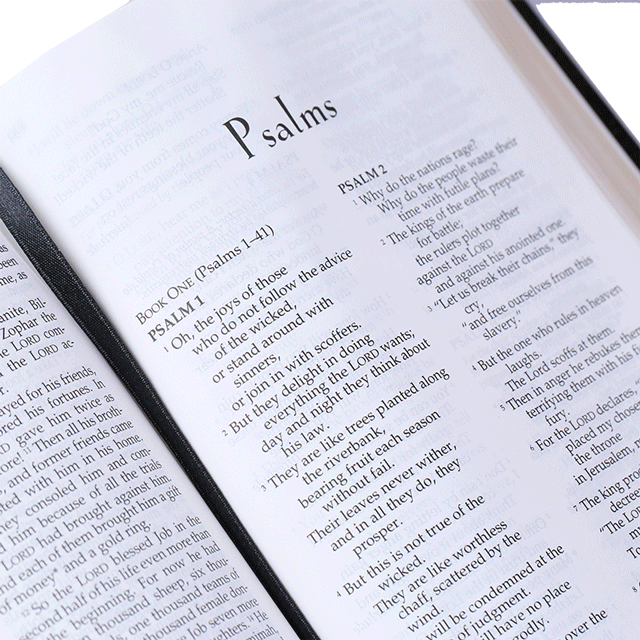 anite, Bil
Zophar the
the LORD com-
the LORD ac
ayed for his friends,
ored his fortunes. In
D gave him twice as
ore! Then all his broth-
, and former friends came
ted with him in his home.
ey consoled him and com-
him because of all the trials
LORD had brought against him.
d each of them brought him a gif
of money and a gold ring.
So the LORD blessed Job in the
second half of his life even more than
the beginning. For now he had
thousand sheep, six thou
one thousand teams of
thousand female don-
Job seven more
aughters.
Psalms
BOOK ONE (Psalms 1–41)
PSALM 1
1 Oh, the joys of those
who do not follow the advice
of the wicked,
or stand around with
sinners,
or join in with scoffers.
2 But they delight in doing
everything the LORD wants;
day and night they think about
his law.
3 They are like trees planted along
the riverbank,
bearing fruit each season
without fail.
Their leaves never wither,
and in all they do, they
prosper.
4 But this is not true of the
wicked.
They are like worthless
chaff, scattered by the
wind.
will be condemned at the
of judgment.
have no place
PSALM 2
1 Why do the nations rage?
Why do the people waste their
time with futile plans?
2 The kings of the earth prepare
for battle;
the rulers plot together
against the LORD
and against his anointed one.
3 "Let us break their chains," they
cry,
"and free ourselves from this
slavery."
4 But the one who rules in heaven
laughs.
The Lord scoffs at them.
5 Then in anger he rebukes them,
terrifying them with his
fury.
6 For the LORD declares,
placed my chosen
the throne
in Jerusalem,
7 The king proc
decree
"The